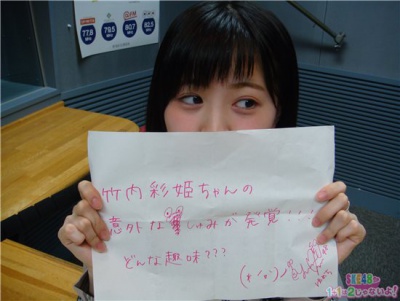 77.8
79.5
80.7
82.5
竹内彩姫ちゃんの
意外なしゅみが発覚!!!
どんな趣味???
SKE48の
1+1は2じゃないよ!